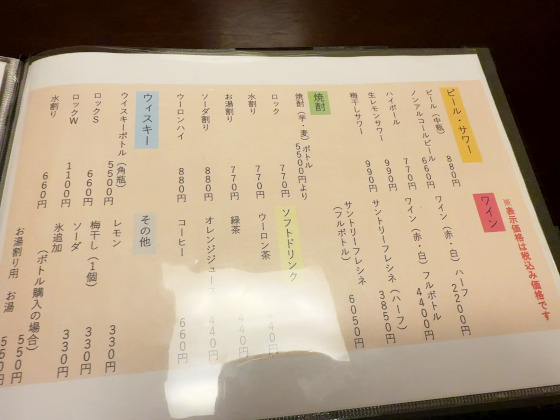 ※表示価格は税込み価格です
ビール・サワー
ビール（中瓶） 880円
ノンアルコールビール 660円
ハイボール 770円
生レモンサワー 990円
梅干しサワー 990円
焼酎
焼酎（芋・麦）ボトル 5500円より
ロック 770円
水割り 770円
お湯割り 770円
ソーダ割り 880円
ウーロンハイ 880円
ウィスキー
ウイスキーボトル（角瓶） 5500円
ロックS 660円
ロックW 1100円
水割り 660円
ワイン
ワイン（赤・白） ハーフ 2200円
ワイン（赤・白） フルボトル 4400円
サントリーフレシネ（ハーフ） 3850円
サントリーフレシネ
（フルボトル） 6050円
ソフトドリンク
ウーロン茶 40円
緑茶 440円
オレンジジュース 440円
コーヒー 660円
その他
レモン 330円
梅干し（1個） 330円
ソーダ 330円
氷追加
（ボトル購入の場合） 550円
お湯割り用 お湯 550円